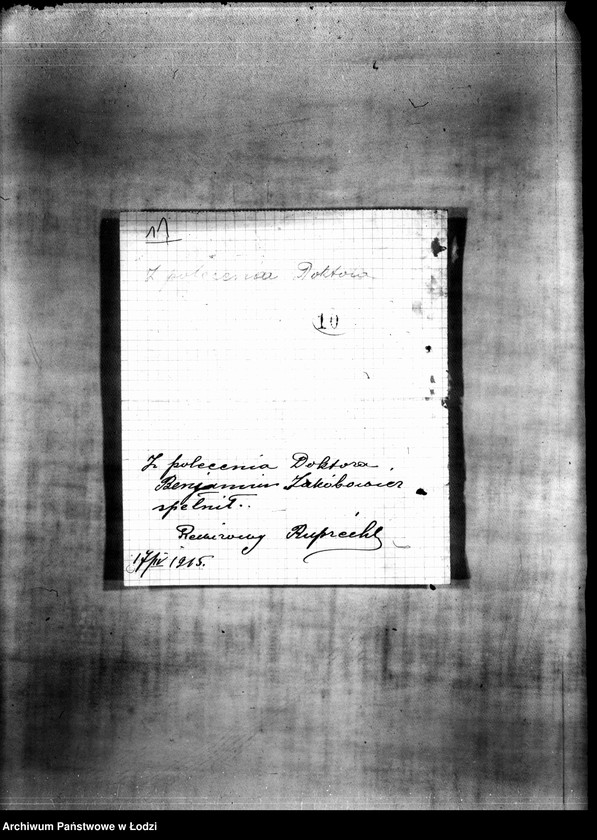 11
Z polecenia Doktora
10
Z polecenia Doktora
Benjamin Jakóbowicz
spełnił..
Rewirowy Ruprecht
17/IV 1915.
Archiwum Państwowe w Łodzi